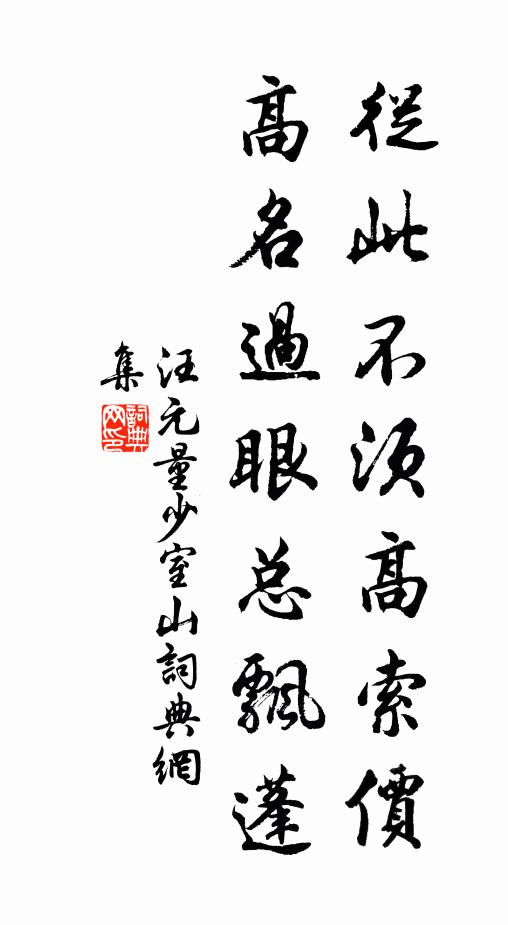 從此不須高索價
高名過眼总飄蓬
汪元量少室山詞典網
集
詞典
网印